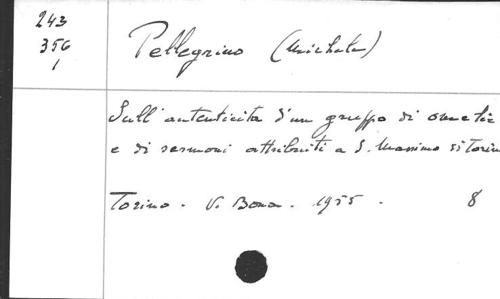 243
356
1
Pellegrino (Michele)
Sull'autenticità d'un gruppo di omelie
e di sermoni attribuiti a S. Massimo di Torino
Torino. V. Bona. 1955. 8